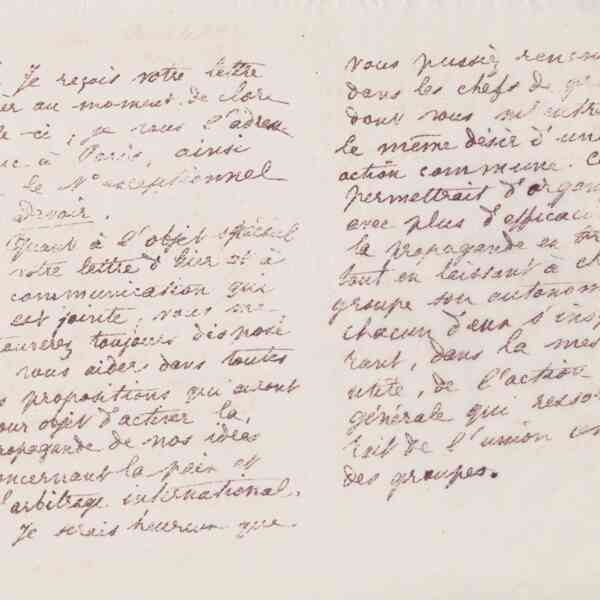 Je reçois votre lettre
ier au moment de clore
le-ci, je vous l'adresse
à Paris, ainsi
le No exceptionnel
Devoir.
Quant à l'objet spécial
votre lettre d'hier et à
communication qui
est jointe, vous me
trouverez toujours disposé
vous aider dans toutes
s propositions qui auront
our objet d'activer la
ropagande de nos idées
oncernant la paix et
l'arbitrage international.
Je serais heureux que
vous pussiez rencon
dans les chefs de gr
dont vous m'entre
le même désir d'un
action commune. C
permettrait d'organ
avec plus d'efficaci
la propagande en
tout en laissant à ch
groupe son autonom
chacun d'eux s'insp
rant, dans la mes
utile, de l'action
générale qui resso
rait de l'union en
des groupes.